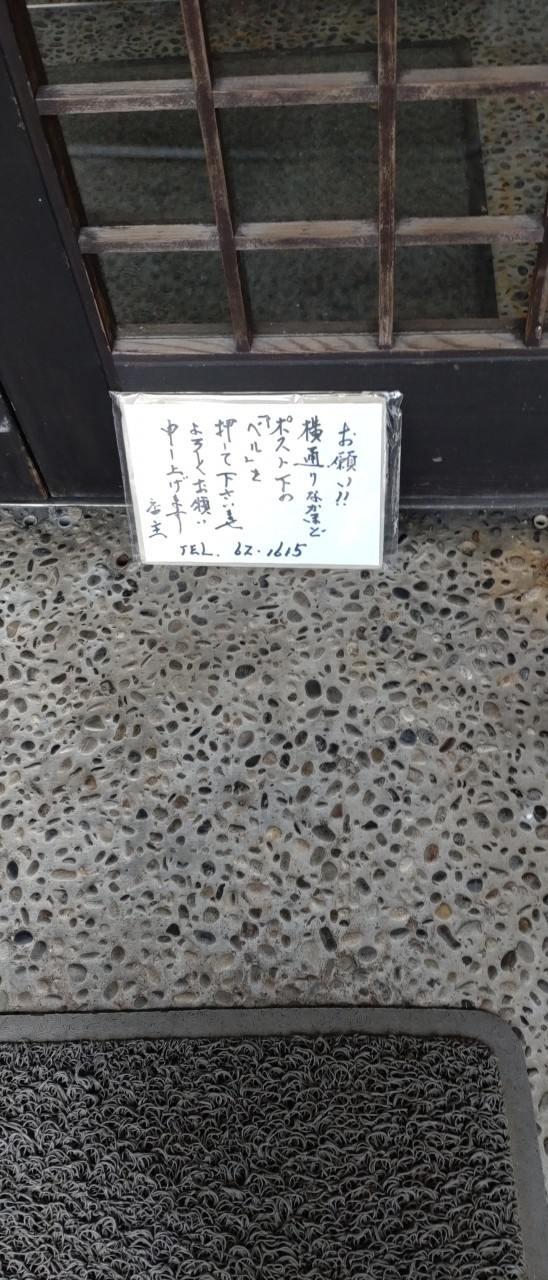 お願い!!
横通りなかほど
ポスト下の
「ベル」を
押して下さいませ
よろしくお願い
申し上げます
店主
TEL. 62-1615